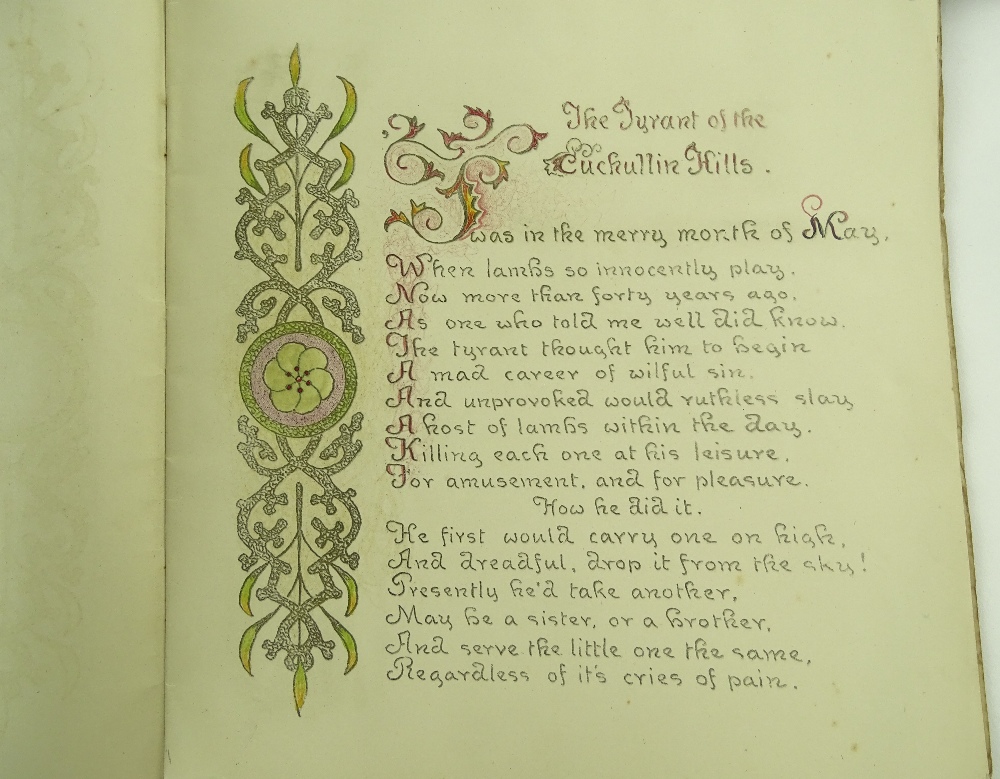 The Tyrant of the
Cuchullin Hills.
Twas in the merry month of May,
When lambs so innocently play,
Now more than forty years ago,
As one who told me well did know,
The tyrant thought him to begin
A mad career of wilful sin,
And unprovoked would ruthless slay
A host of lambs within the day.
Killing each one at his leisure,
For amusement, and for pleasure.
How he did it.
He first would carry one on high,
And dreadful, drop it from the sky!
Presently he'd take another,
May be a sister, or a brother,
And serve the little one the same,
Regardless of it's cries of pain.